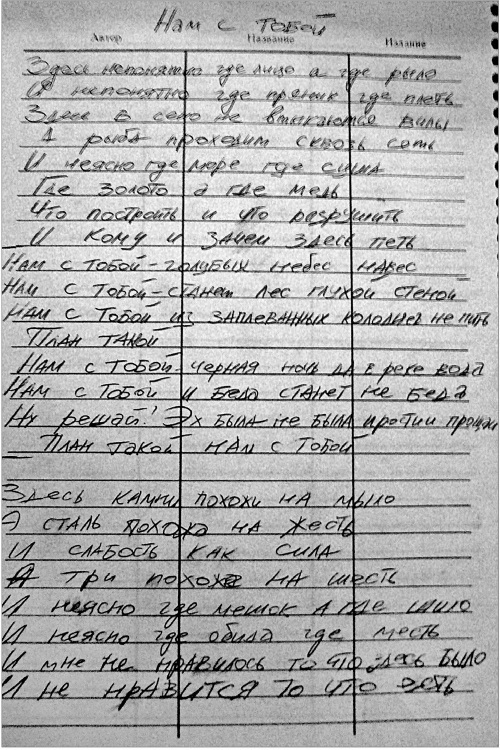 Нам с тобой
Автор Название Издание
Здесь непонятно где лицо а где рыло
И непонятно где пряник где плеть
Здесь в сено не втыкаются вилы
А рыба проходит сквозь сеть
И неясно где море где суша
Где золото а где медь
Что построить и что разрушить
И кому и зачем здесь петь
Нам с тобой - голубых небес навес
Нам с тобой - станет лес глухой стеной
Нам с тобой из заплеванных колодцев не пить
План такой
Нам с тобой - черная ночь да в реке вода
Нам с тобой и беда станет не беда
Ну решай! Эх была не была прости и прощай
План такой нам с тобой
Здесь камни похожи на мыло
А сталь похожа на жесть
И слабость как сила
А три похоже на шесть
И неясно где мешок а где шило
И неясно где обида где месть
И мне не нравилось то что здесь было
И не нравится то что есть